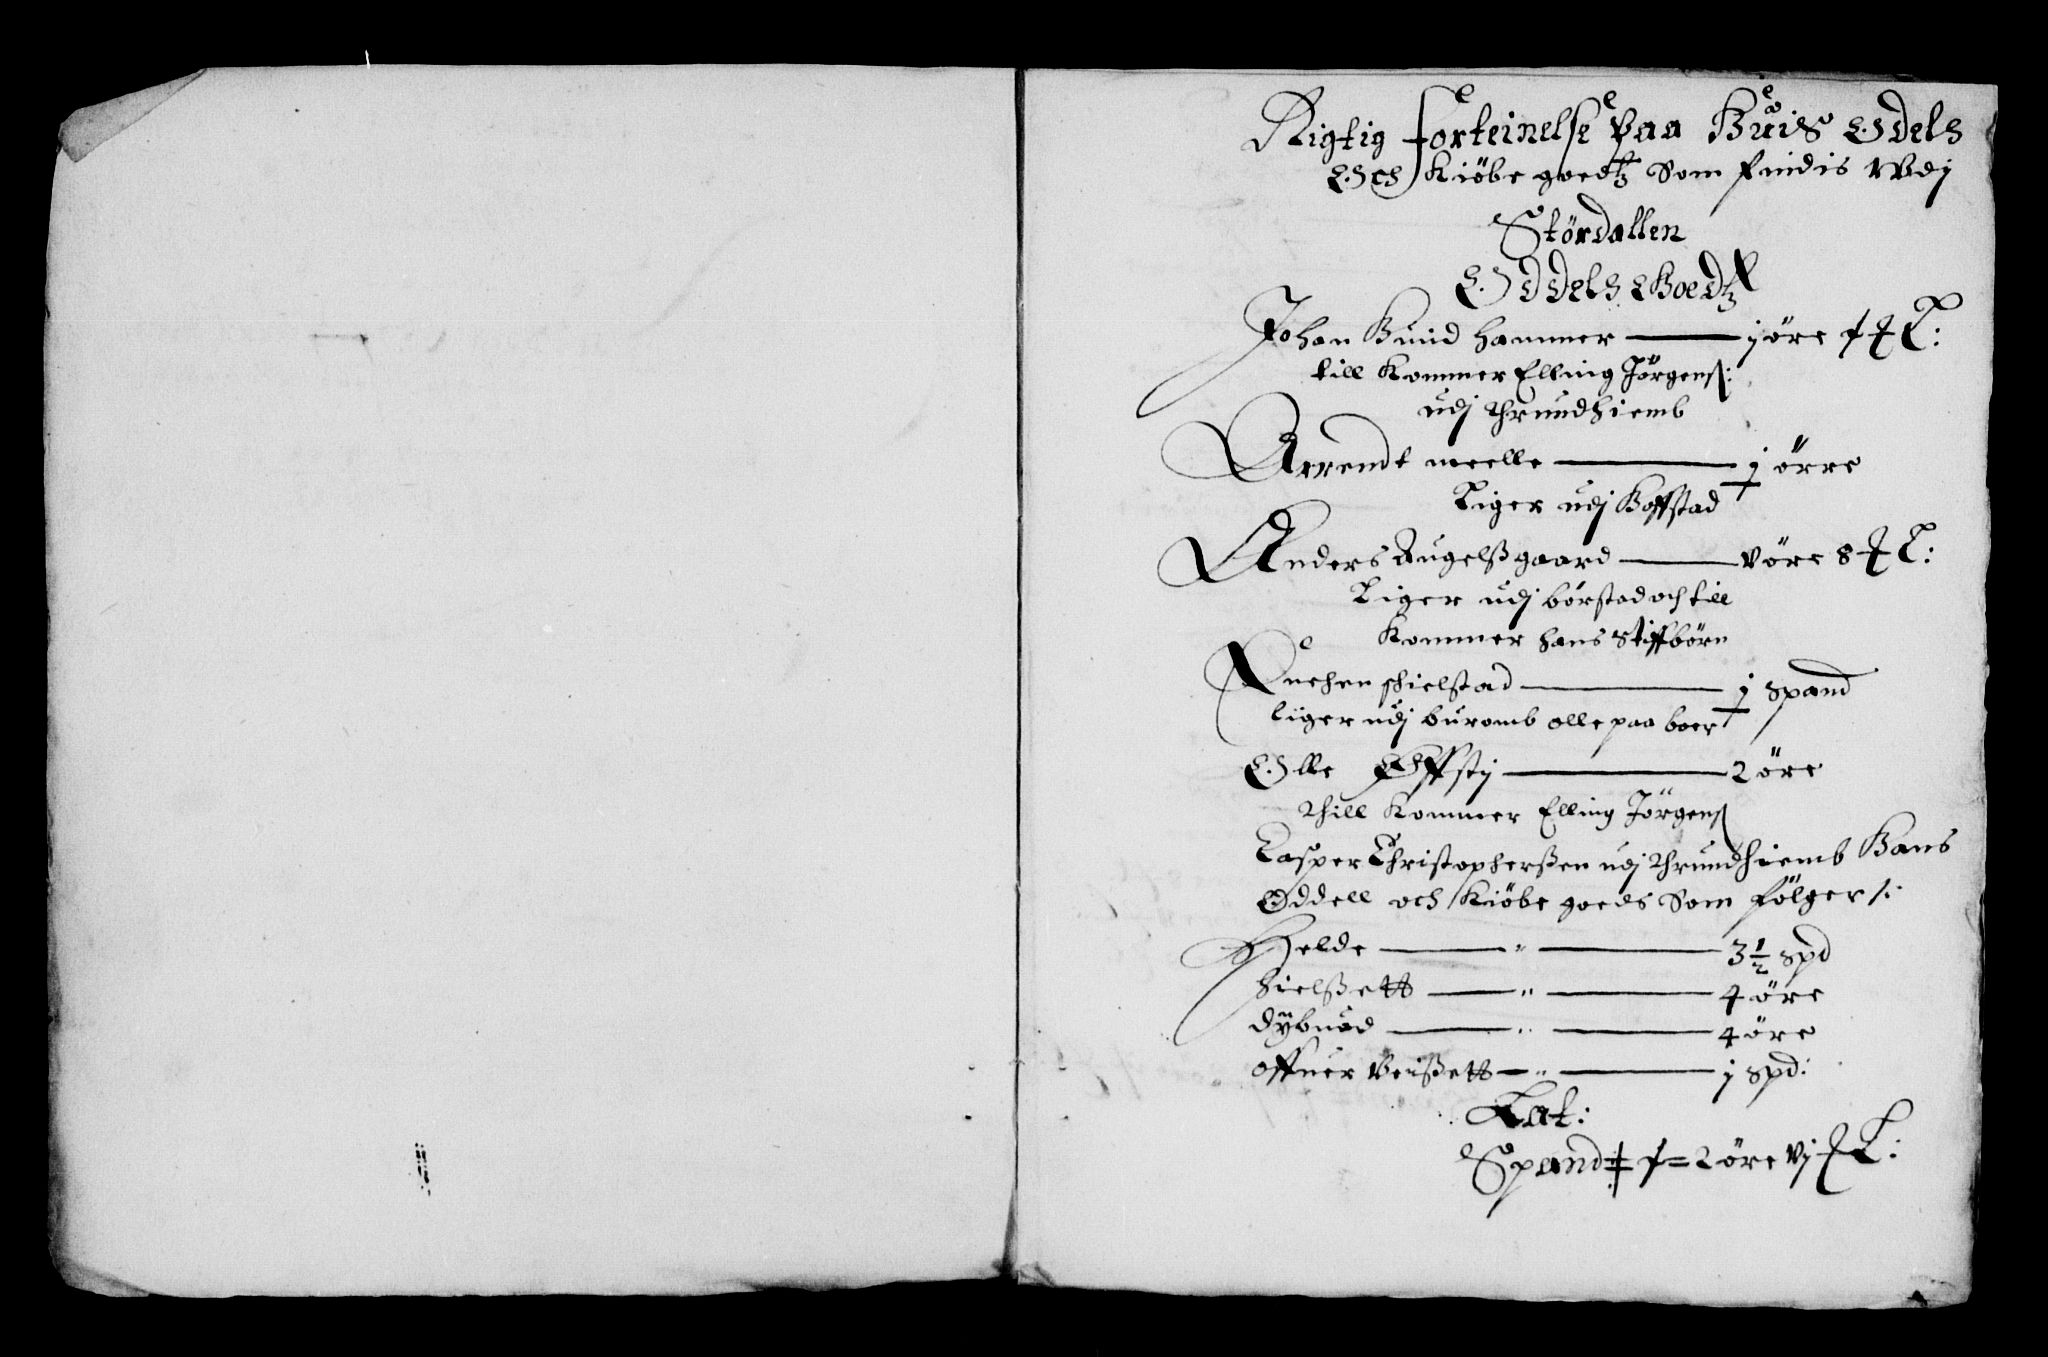 Rigtig forteinelse paa Huis Odels
Och Kiöbe goedtz Som findis Wdj
Stördallen
Oddels Goedtz
Johan Huid hammer — j öre 1 ₰ L:
till Kommer Elling Jörgens:
udj Thrundhiemb
Arrendt meelle — j örre
Liger udj Hoffstad
Anders Augelßgaard — v öre 8 ₰ L:
Liger udj börstad och till
Kommer hans Stiffbörn
schielstad — j Spand
liger udj buromb olle paa boer
Olle Offstj — 2 öre
Thill Kommer Elling Jörgens
Casper Christopherßen udj Thrundhiemb Hans
Oddell och Kiöbe goeds Som fölger /:
Helde — " — 3 1/2 Spd
hielßett — " — 4 öre
dybuad — " — 4 öre
offuer Veißett — " — j Spd:
Lat:
Spand 2 öre vj ₰ L: